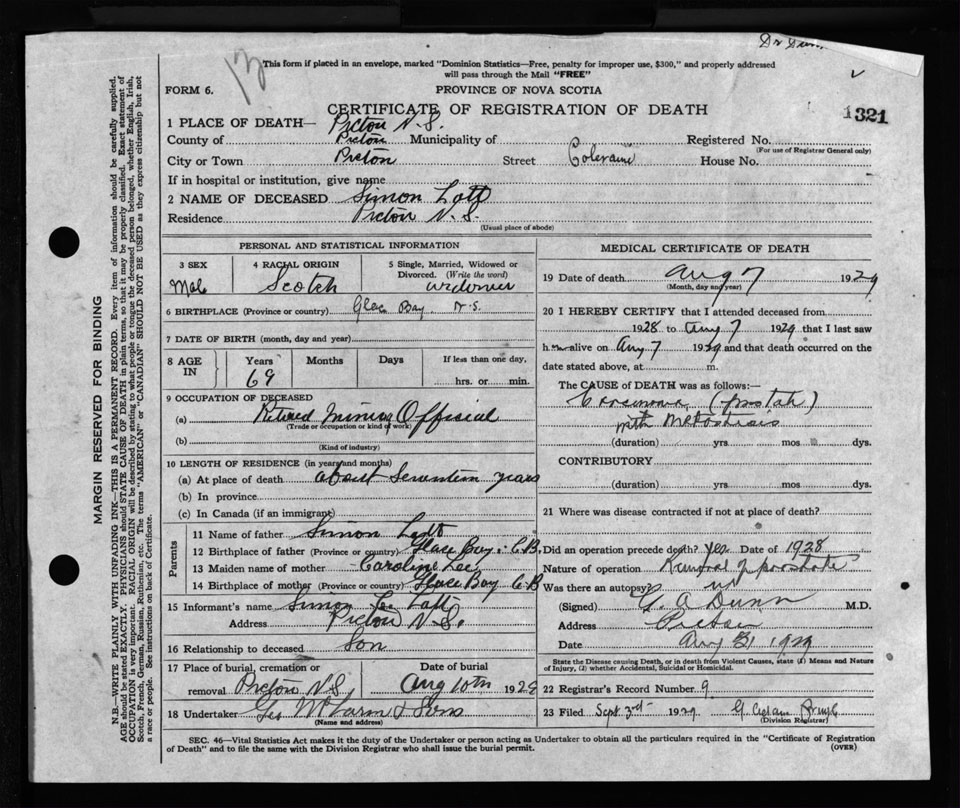 Dr Dunn
13
This form if placed in an envelope, marked "Dominion Statistics—Free, penalty for improper use, $300," and properly addressed
will pass through the Mail "FREE"
FORM 6.
PROVINCE OF NOVA SCOTIA
CERTIFICATE OF REGISTRATION OF DEATH
1321
1 PLACE OF DEATH— Pictou N.S.
County of Pictou Municipality of Registered No.
(For use of Registrar General only)
City or Town Pictou Street Coleraine House No.
If in hospital or institution, give name
2 NAME OF DECEASED Simon Lott
Residence Pictou N.S.
(Usual place of abode)
MARGIN RESERVED FOR BINDING
N.B.—WRITE PLAINLY WITH UNFADING INK—THIS IS A PERMANENT RECORD. Every item of information should be carefully supplied.
AGE should be stated EXACTLY. PHYSICIANS should STATE CAUSE OF DEATH in plain terms, so that it may be properly classified. Exact statement of
OCCUPATION is very important. RACIAL ORIGIN will be described by stating to what people or tongue the deceased person belonged, whether English, Irish,
Scotch, French, German, Russian, Ruthenian, etc. The terms "AMERICAN" or "CANADIAN" SHOULD NOT BE USED as they express citizenship but not
a race or people. See instructions on back of Certificate.
PERSONAL AND STATISTICAL INFORMATION
3 SEX
Male
4 RACIAL ORIGIN
Scotch
5 Single, Married, Widowed or
Divorced. (Write the word)
widower
6 BIRTHPLACE (Province or country) Glace Bay. N.S.
7 DATE OF BIRTH (month, day and year)
8 AGE
IN
Years
69
Months
Days
If less than one day,
hrs. or min.
9 OCCUPATION OF DECEASED
(a) Retired Mining Official
(Trade or occupation or kind of work)
(b)
(Kind of industry)
10 LENGTH OF RESIDENCE (in years and months)
(a) At place of death about Seventeen years
(b) In province
(c) In Canada (if an immigrant)
Parents
11 Name of father Simon Lott
12 Birthplace of father (Province or country) Glace Bay. C.B.
13 Maiden name of mother Caroline Lee
14 Birthplace of mother (Province or country) Glace Bay C B
15 Informant's name Simon Lee Lott
Address Pictou N.S.
16 Relationship to deceased Son
17 Place of burial, cremation or
removal Pictou N.S.
Date of burial
Aug 10th 1929
18 Undertaker Geo & Sons
(Name and address)
MEDICAL CERTIFICATE OF DEATH
19 Date of death Aug 7 1929
(Month, day and year)
20 I HEREBY CERTIFY that I attended deceased from
1928 to Aug 7 1929 that I last saw
him alive on Aug 7 1929 and that death occurred on the
date stated above, at m.
The CAUSE of DEATH was as follows:
Carcinoma (prostate)
with Metastases
(duration) yrs mos dys.
CONTRIBUTORY
(duration) yrs mos dys.
21 Where was disease contracted if not at place of death?
Did an operation precede death? Yes Date of 1928
Nature of operation Removal of prostate
Was there an autopsy? no
(Signed) G. A Dunn M.D.
Address Pictou
Date Aug 31 1929
State the Disease causing Death, or in death from Violent Causes, state (1) Means and Nature
of Injury, (2) whether Accidental, Suicidal or Homicidal.
22 Registrar's Record Number 9.
23 Filed Sept 3rd 1929
(Division Registrar)
SEC. 46—Vital Statistics Act makes it the duty of the Undertaker or person acting as Undertaker to obtain all the particulars required in the "Certificate of Registration
of Death" and to file the same with the Division Registrar who shall issue the burial permit.
(OVER)